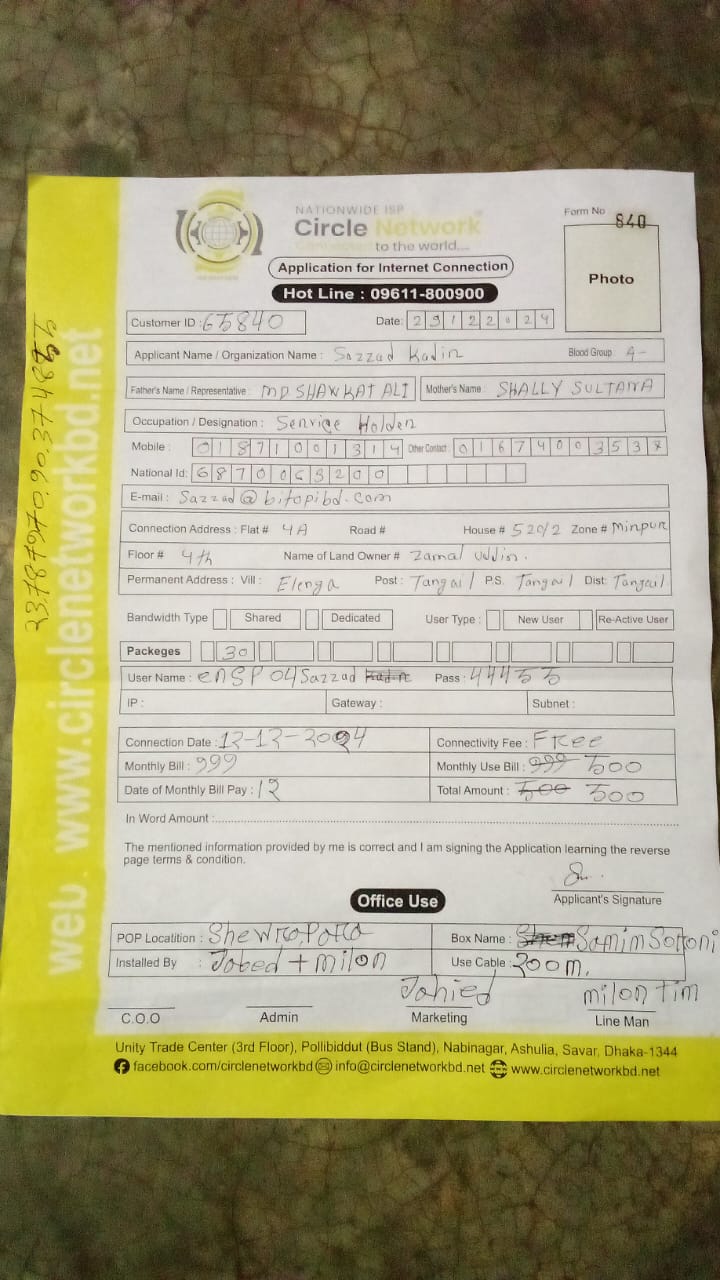 NATIONWIDE ISP
Circle Network
Connected to the world...
Form No 840
Application for Internet Connection
Photo
Hot Line : 09611-800900
Customer ID : 65840 Date: 29122024
Applicant Name / Organization Name : Sazzad Kadir Blood Group A-
Father's Name / Representative : MD SHAWKAT ALI Mother's Name SHALLY SULTANA
Occupation / Designation : Service Holder
Mobile : 01871001314 Other Contact 01674003537
National Id: 6870063200
E-mail : Sazzad@bitopibd.com
Connection Address : Flat # 4A Road # House # 520/2 Zone # Mirpur
Floor # 4th Name of Land Owner # Zamal Uddin.
Permanent Address : Vill : Elenga Post : Tangail P.S. Tangail Dist: Tangail
Bandwidth Type Shared Dedicated User Type : New User Re-Active User
Packeges 30
User Name : enSP04Sazzad Pass : 44455
IP : Gateway : Subnet :
Connection Date : 12-12-2024 Connectivity Fee : FRee
Monthly Bill : 999 Monthly Use Bill : 999 500
Date of Monthly Bill Pay : 12 Total Amount : 500 500
In Word Amount :
The mentioned information provided by me is correct and I am signing the Application learning the reverse
page terms & condition.
Applicant's Signature
Office Use
POP Locatition : ShewraPara Box Name : Samim Sorroni
Installed By : Jobed + milon Use Cable : 200m.
Jahied milon Tim
C.O.O Admin Marketing Line Man
Unity Trade Center (3rd Floor), Pollibiddut (Bus Stand), Nabinagar, Ashulia, Savar, Dhaka-1344
facebook.com/circlenetworkbd info@circlenetworkbd.net www.circlenetworkbd.net
web. www.circlenetworkbd.net